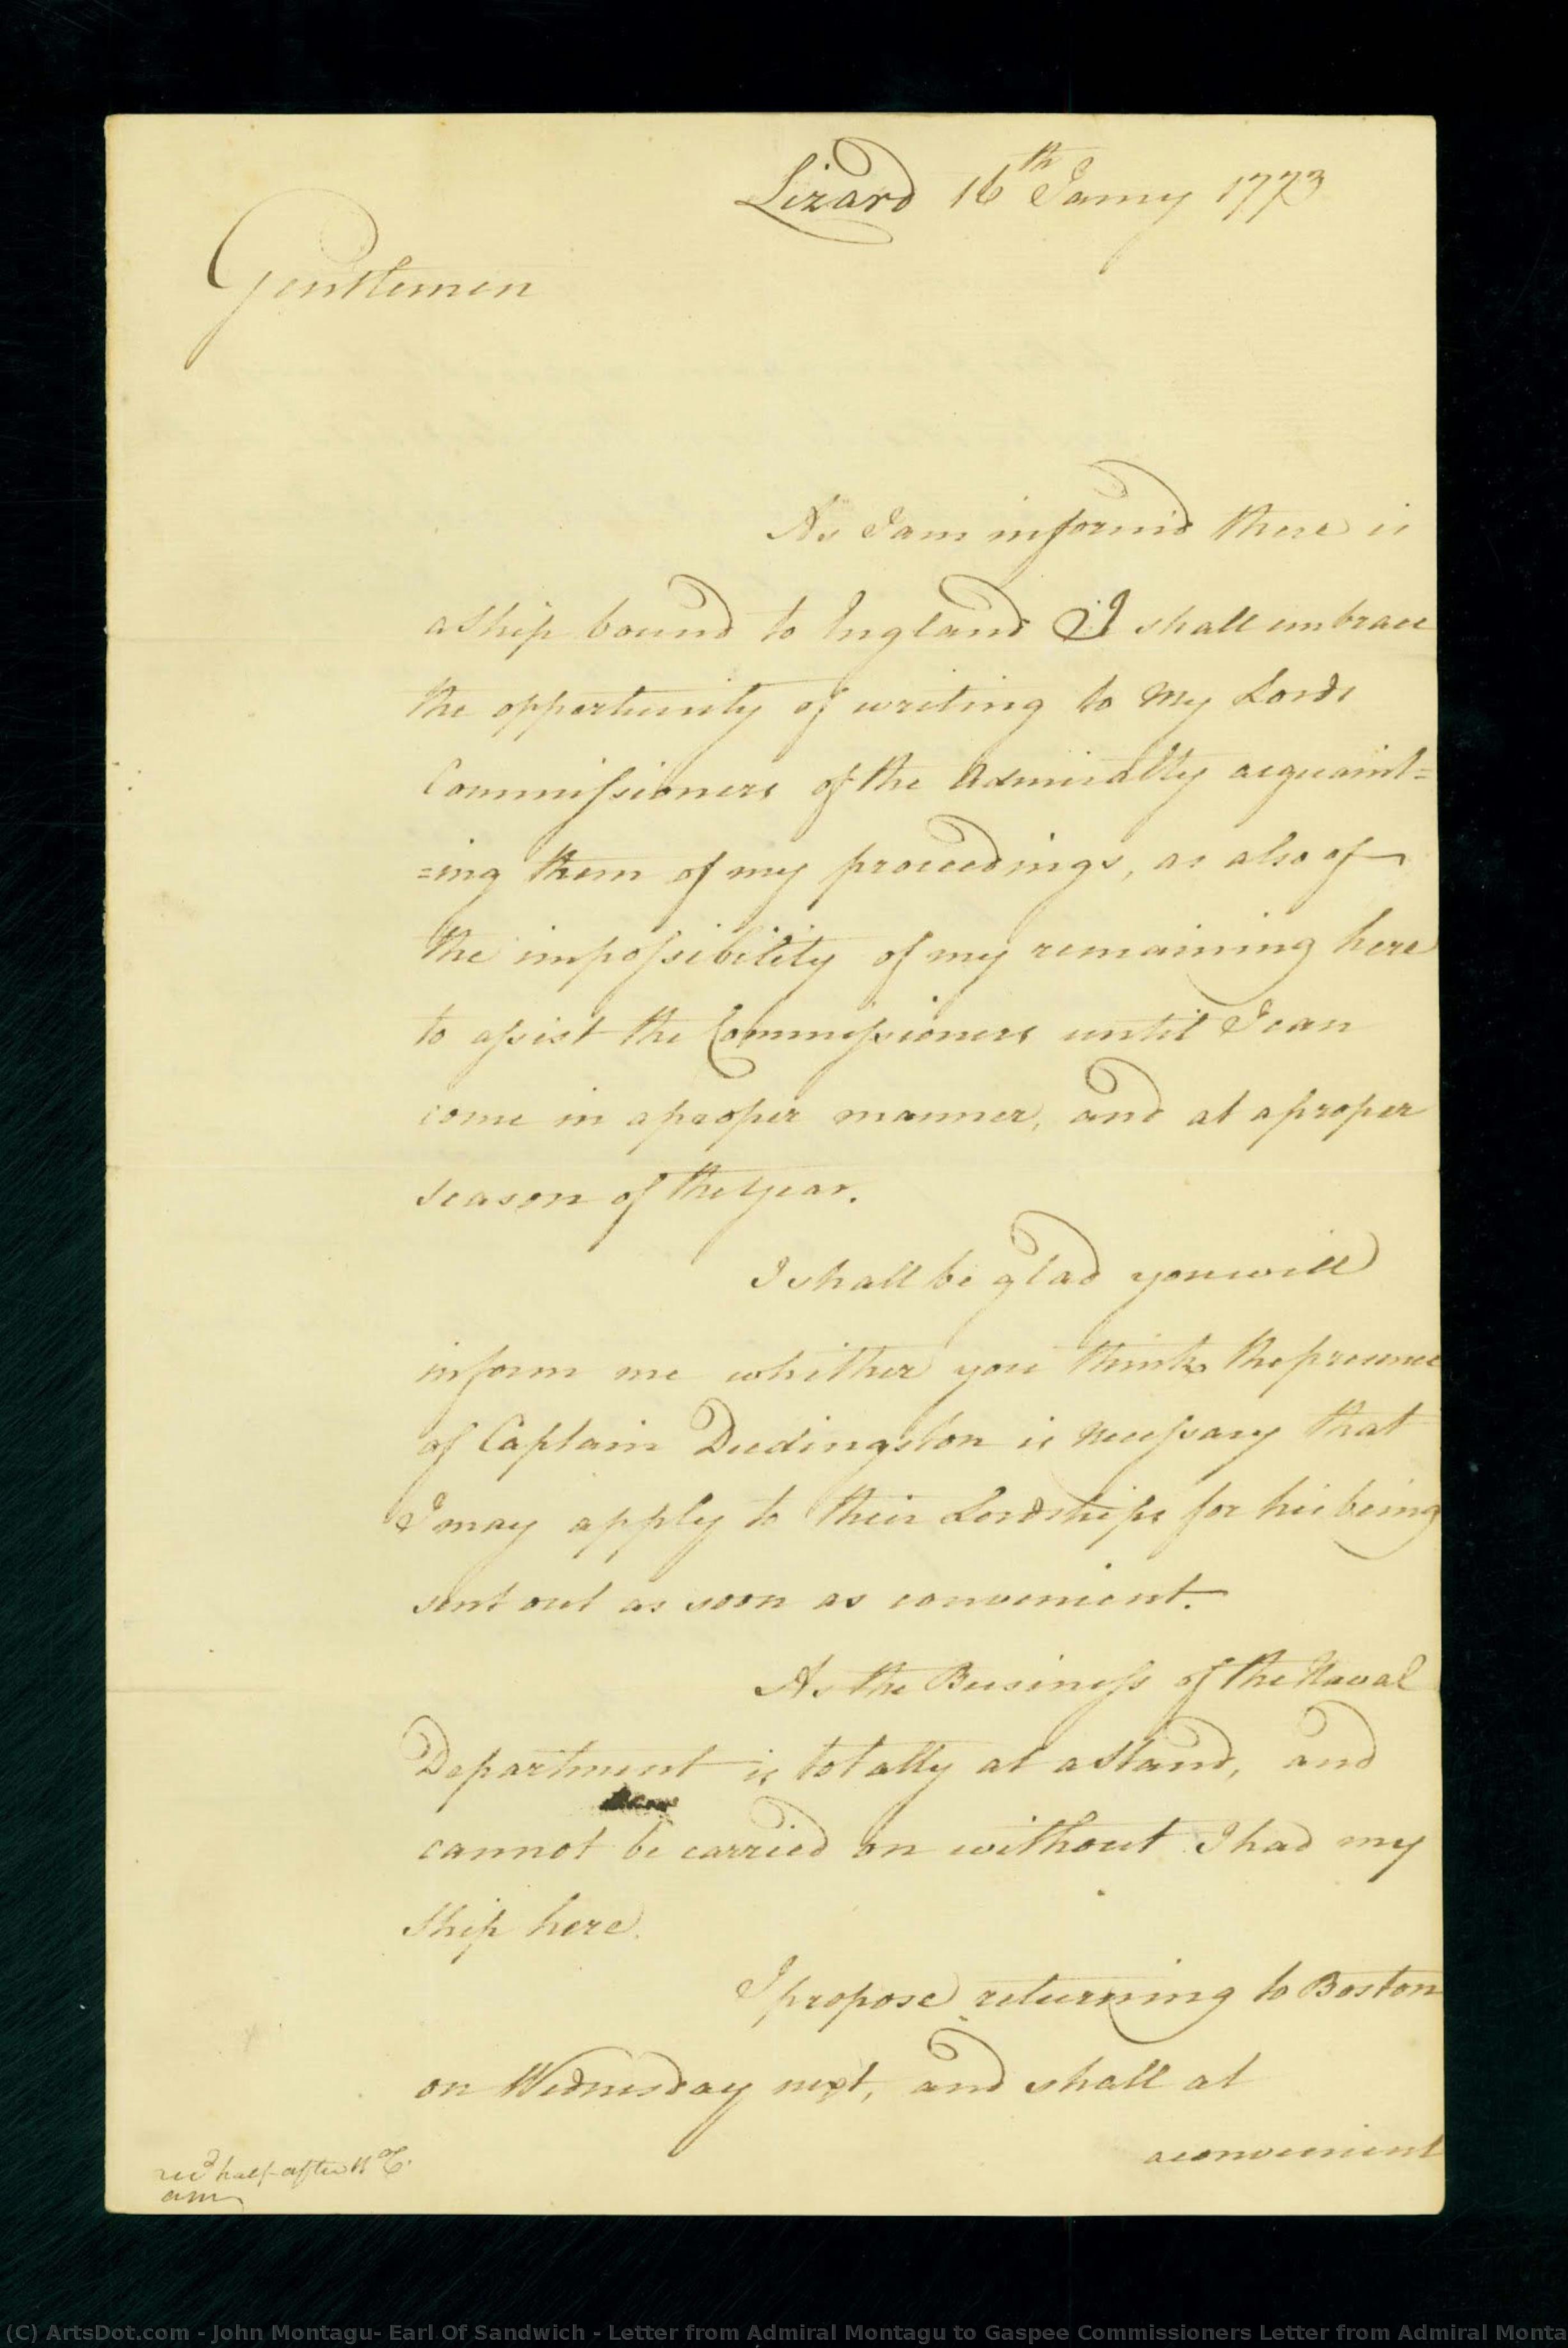 Lizard 16th Jany 1773
Gentlemen
As I am inform'd there is
a Ship bound to England I shall embrace
the opportunity of writing to My Lords
Commissioners of the Admiralty acquaint=
=ing them of my proceedings, as also of
the impossibility of my remaining here
to assist the Commissioners until I can
come in a proper manner, and at a proper
season of the Year.
I shall be glad you will
inform me whether you think the presence
of Captain Dudingston is necessary that
I may apply to their Lordships for his being
sent out as soon as convenient.
As the Business of the Naval
Department is totally at a Stand, and
cannot be carried on without I had my
Ship here.
I propose returning to Boston
on Wednesday next, and shall at
a convenient
recd half after 11 oC.
am
(C) ArtsDot.com - John Montagu- Earl Of Sandwich - Letter from Admiral Montagu to Gaspee Commissioners Letter from Admiral Monta